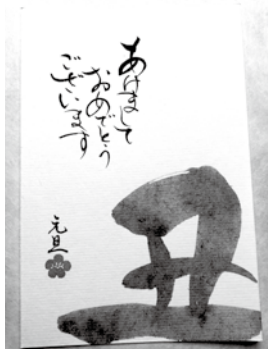 あけまして
おめでとう
ございます
元旦
丑